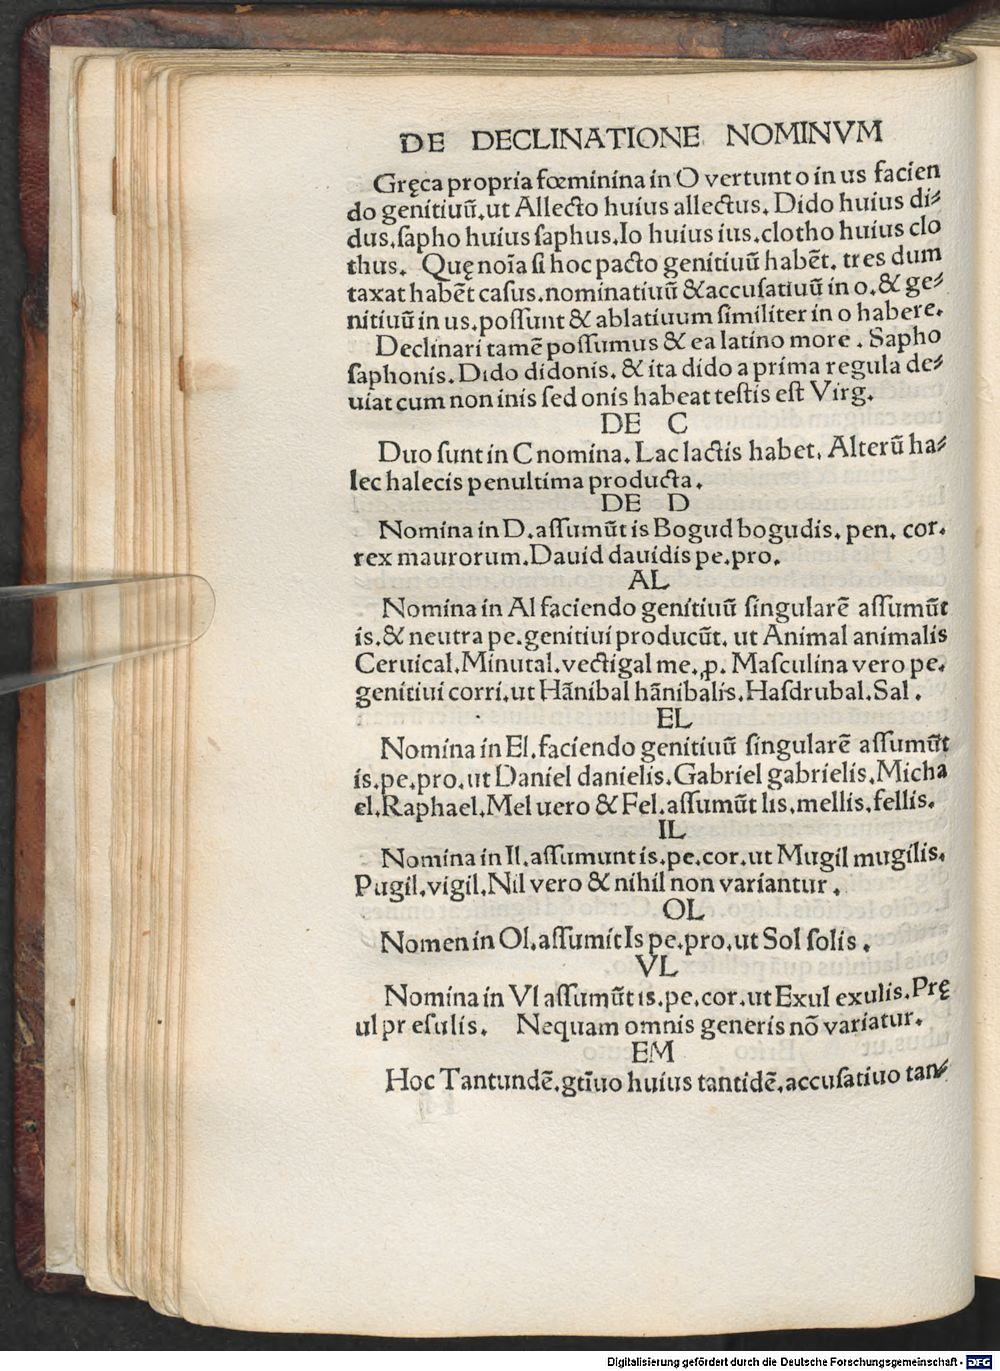 DE DECLINATIONE NOMINVM
Gręca propria fœminina in O vertunt o in us facien
do genitiuũ.ut Allecto huius allectus. Dido huius di⸗
dus.ſapho huius ſaphus.Io huius ius.clotho huius clo
thus. Quę noĩa ſi hoc pacto genitiuũ habẽt. tres dum
taxat habẽt caſus.nominatiuũ & accuſatiuũ in o.& ge⸗
nitiuũ in us.poſſunt & ablatiuum ſimiliter in o habere.
Declinari tamẽ poſſumus & ea latino more . Sapho
ſaphonis.Dido didonis. & ita dido a prima regula de⸗
uiat cum non inis ſed onis habeat teſtis eſt Virg.
DE C
Duo ſunt in C nomina. Lac lactis habet. Alterũ ha⸗
lec halecis penultima producta.
DE D
Nomina in D.aſſumũt is Bogud bogudis. pen. cor.
rex maurorum.Dauid dauidis pe.pro.
AL
Nomina in Al faciendo genitiuũ ſingularẽ aſſumũt
is.& neutra pe.genitiui producũt. ut Animal animalis
Ceruical.Minutal.vectigal me.ꝓ. Maſculina vero pe.
genitiui corri.ut Hãnibal hãnibalis.Haſdrubal.Sal.
EL
Nomina in El.faciendo genitiuũ ſingularẽ aſſumũt
is.pe.pro.ut Daniel danielis.Gabriel gabrielis.Micha
el.Raphael.Mel uero & Fel.aſſumũt lis.mellis.fellis.
IL
Nomina in Il.aſſumunt is.pe.cor.ut Mugil mugilis.
Pugil.vigil.Nil vero & nihil non variantur.
OL
Nomen in Ol.aſſumit Is pe.pro.ut Sol ſolis.
VL
Nomina in Vl aſſumũt is.pe.cor.ut Exul exulis.Prę
ul preſulis. Nequam omnis generis nõ variatur.
EM
Hoc Tantundẽ.gtĩuo huius tantidẽ.accuſatiuo tan⸗
Digitalisierung gefördert durch die Deutsche Forschungsgemeinschaft - DFG